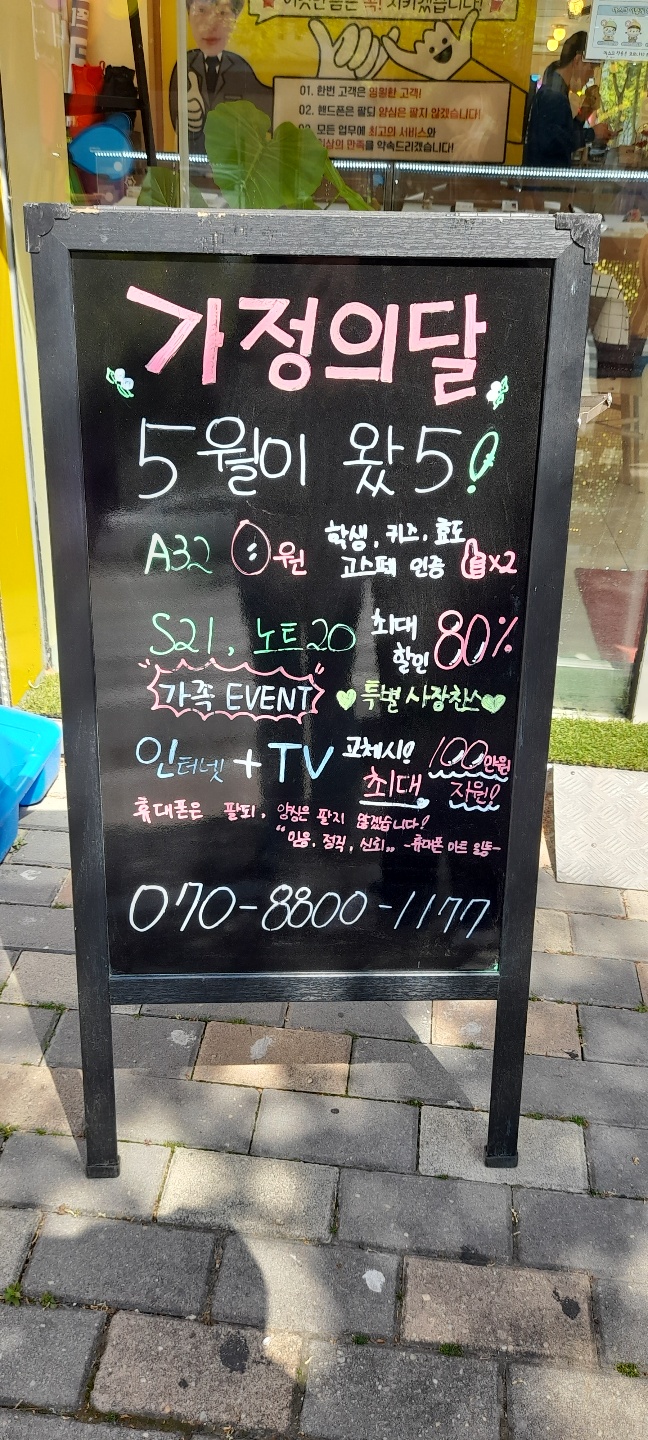 지키겠습니다!
01. 한번 고객은 영원한 고객!
02. 핸드폰은 팔되 양심은 팔지 않겠습니다!
모든 업무에 최고의 서비스와
만족을 약속드리겠습니다!
가정의달
5월이 왔5!
A32 0원 학생, 키즈, 효도
고스펙 인증 x2
S21, 노트20 최대
할인 80%
가족 EVENT 특별 사장찬스
인터넷 + TV 교체시! 100만원
최대 지원!
휴대폰은 팔되, 양심은 팔지 않겠습니다!
"믿음, 정직, 신뢰" -휴대폰 마트 일동-
070-8800-1177